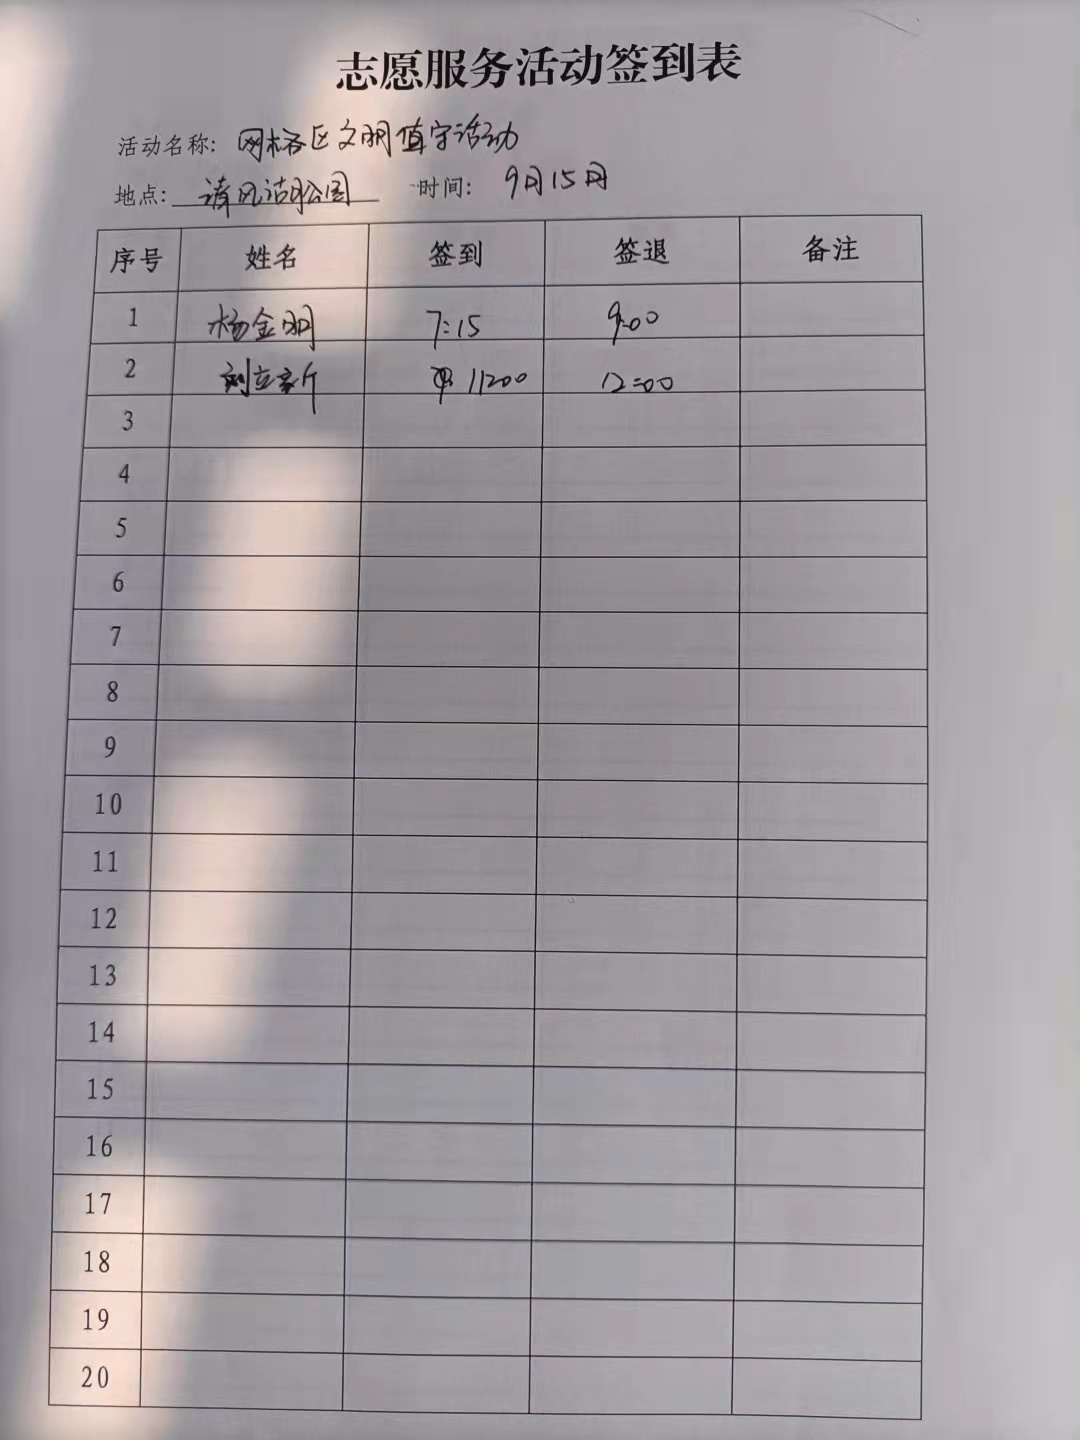 志愿服务活动签到表
活动名称: 网格区文明值守活动
地点: 清风 公园 时间: 9月15日
序号 姓名 签到 签退 备注
1 杨金明 7:15 9:00
2 刘立新 11:00 12:00
3
4
5
6
7
8
9
10
11
12
13
14
15
16
17
18
19
20